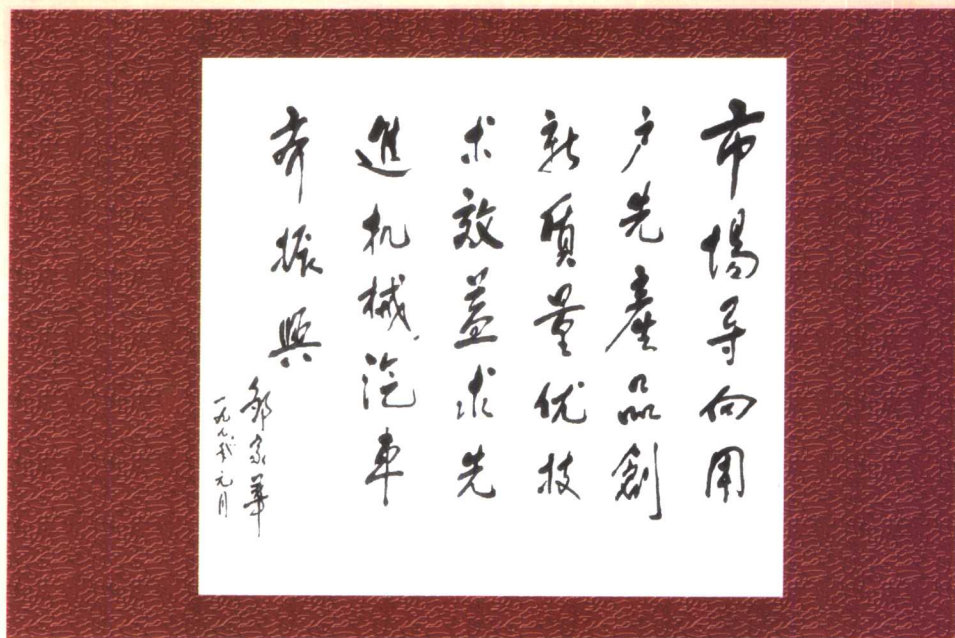 市場导向用
户先產品創
新質量优技
术效益求先
進机械汽車
齐振興
邹家華
一九九 元月